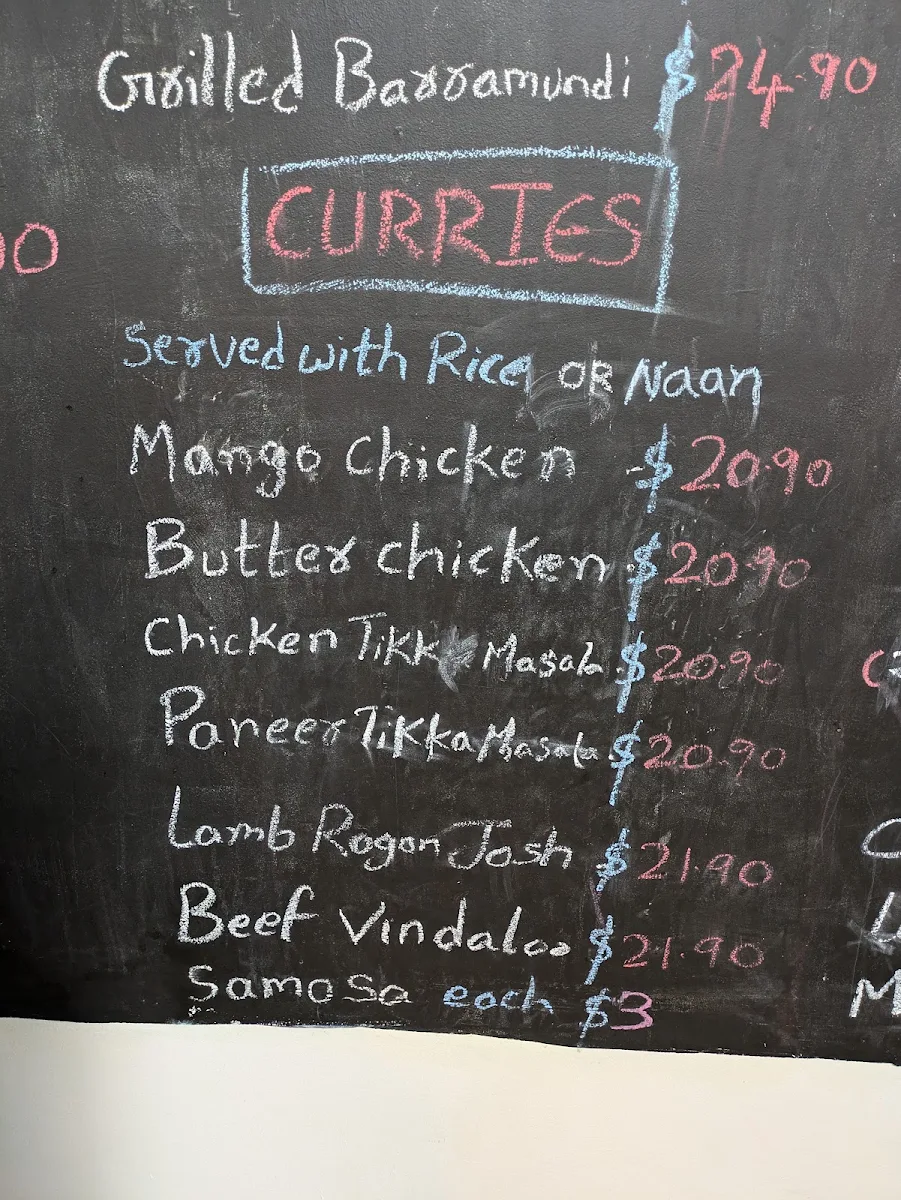 Grilled Barramundi $24.90
CURRIES
00
Served with Rice OR Naan
Mango Chicken $20.90
Butter chicken $20.90
Chicken Tikka Masala $20.90
Paneer Tikka Masala $20.90
Lamb Rogon Josh $21.90
Beef Vindaloo $21.90
Samosa each $3